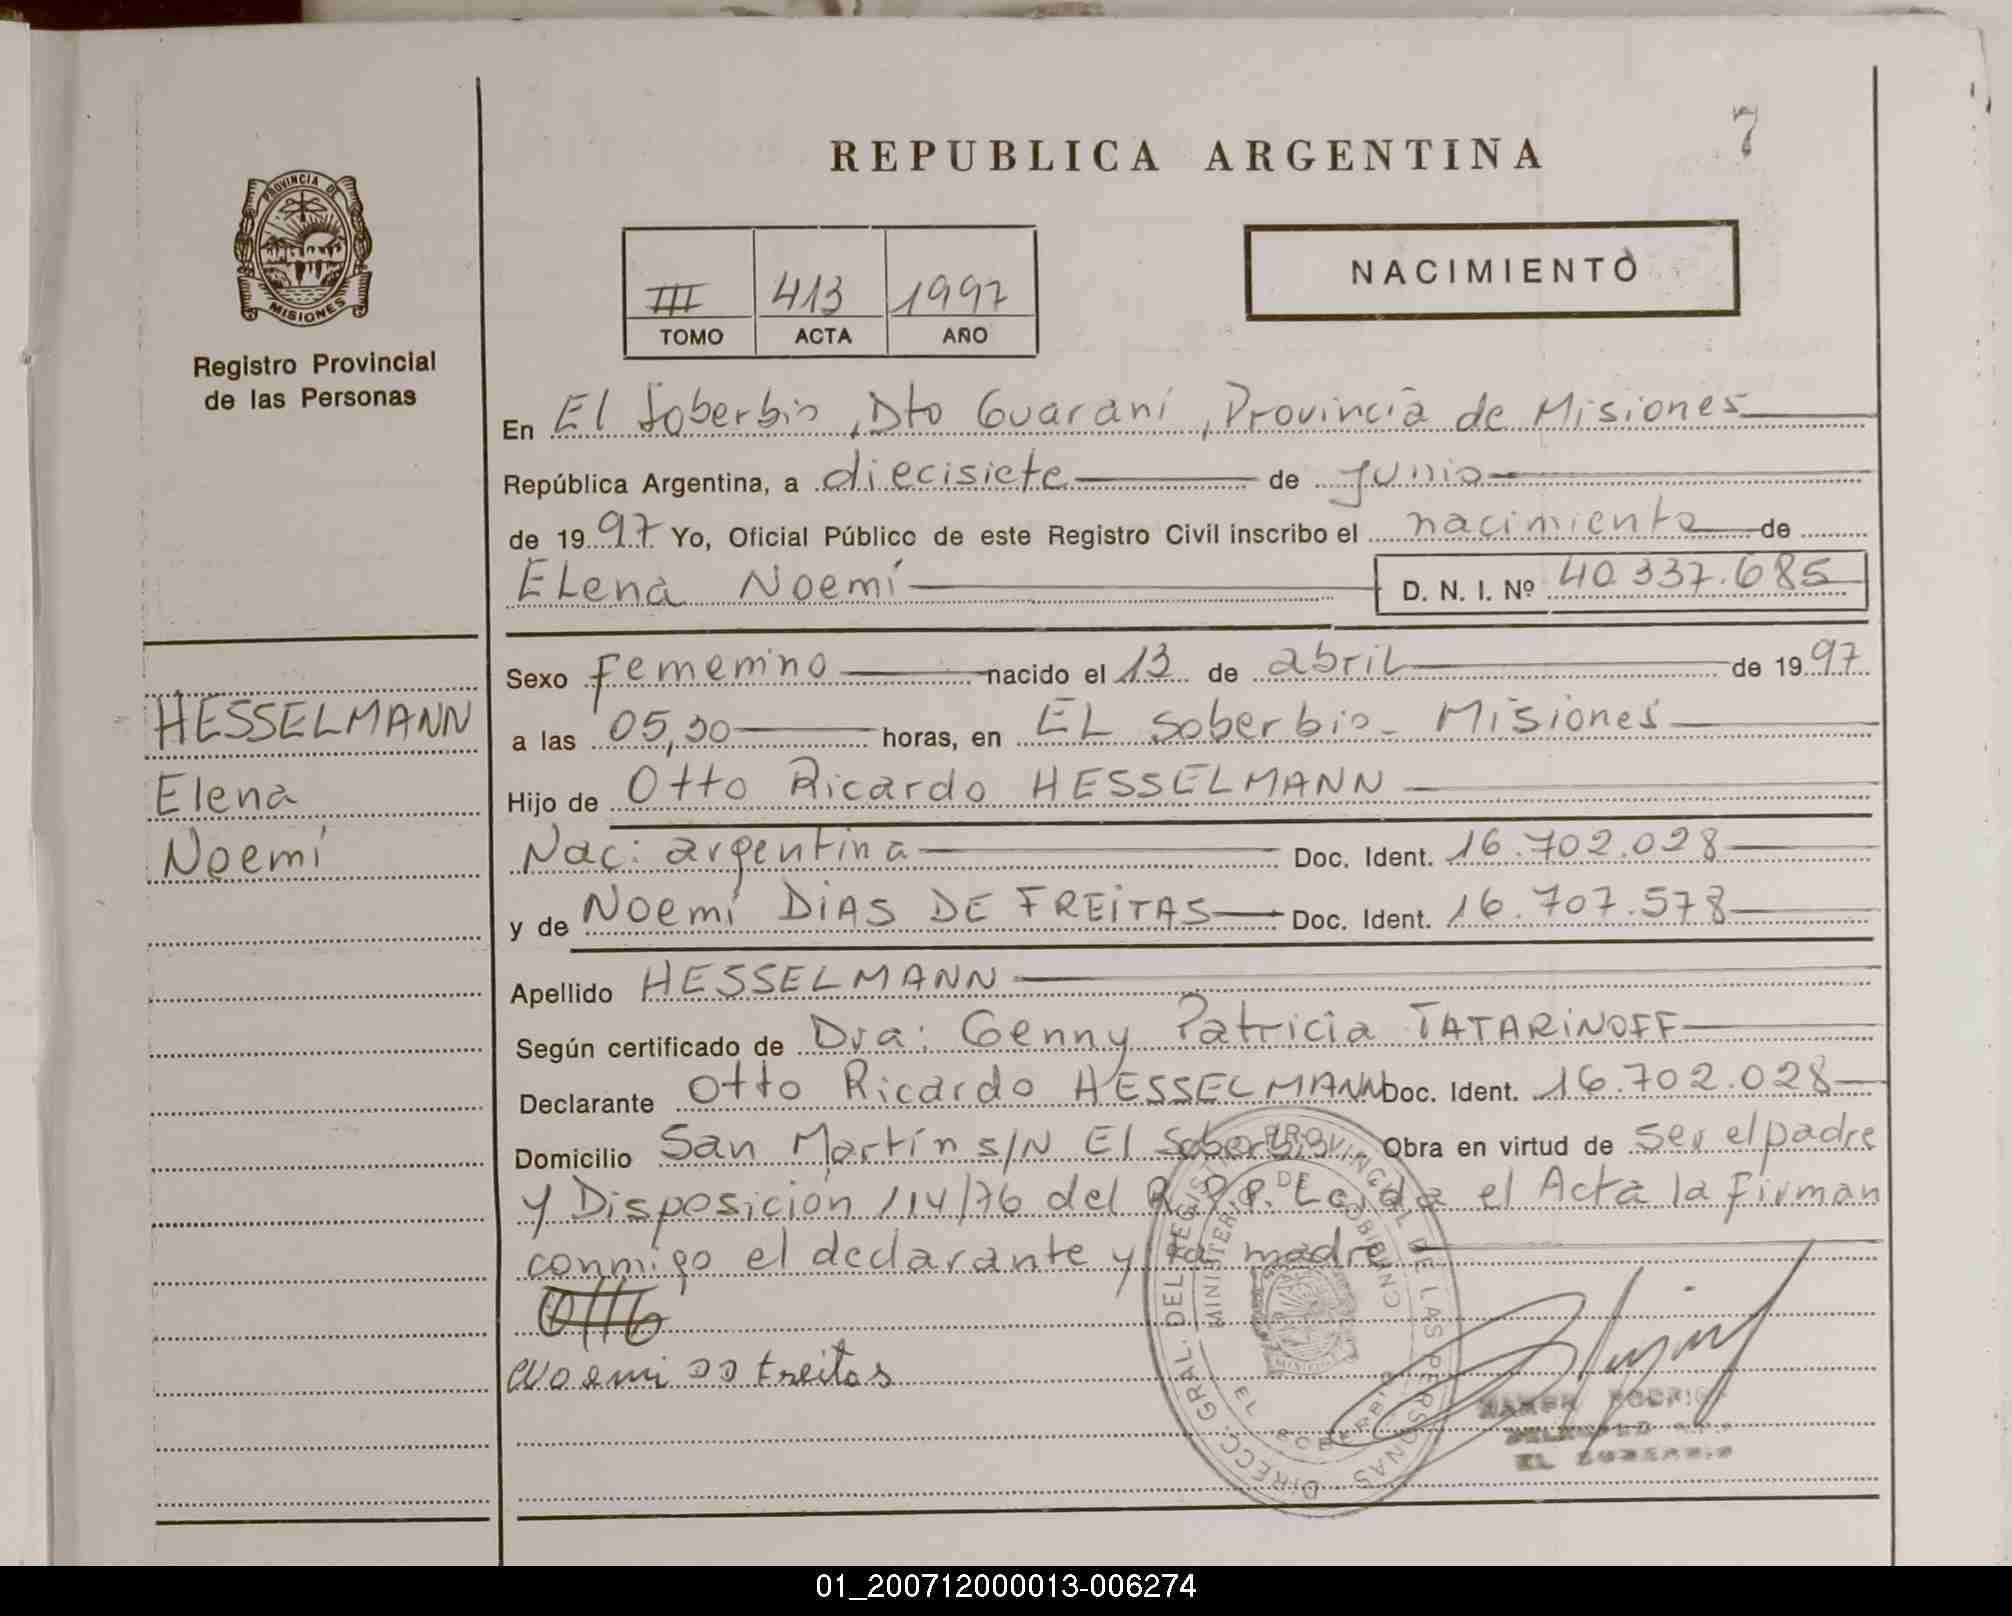 7
REPUBLICA ARGENTINA
NACIMIENTO
III 413 1997
TOMO ACTA AÑO
PROVINCIA DE
MISIONES
Registro Provincial
de las Personas
En El Soberbio, Dto Guaraní, Provincia de Misiones
República Argentina, a diecisiete de junio
de 1997 Yo, Oficial Público de este Registro Civil inscribo el nacimiento de
Elena Noemí D. N. I. Nº 40.337.685
Sexo Femenino nacido el 13 de abril de 1997
a las 05,30 horas, en EL Soberbio - Misiones
Hijo de Otto Ricardo HESSELMANN
Nac: argentina Doc. Ident. 16.702.028
y de Noemí DIAS DE FREITAS Doc. Ident. 16.707.578
Apellido HESSELMANN
Según certificado de Dra: Genny Patricia TATARINOFF
Declarante Otto Ricardo HESSELMANN Doc. Ident. 16.702.028
Domicilio San Martín s/N El Soberbio Obra en virtud de ser el padre
y Disposición 114/76 del R.P.P. Leída el Acta la firman
conmigo el declarante y la madre
HESSELMANN
Elena
Noemí
Noemi DD Freitas
DIRECC. GRAL. DEL REGISTRO PROVINCIAL DE LAS PERSONAS
MINISTERIO DE GOBIERNO
EL SOBERBIO
MISIONES
EL SOBERBIO
01_200712000013-006274